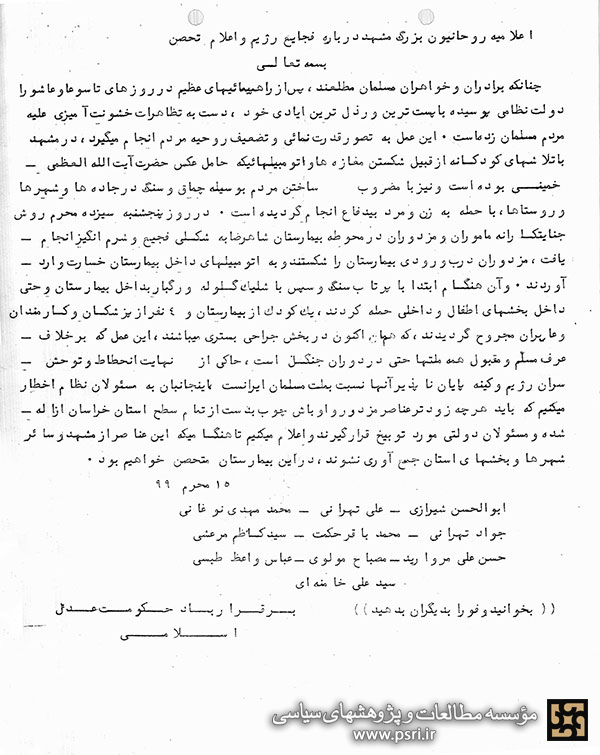 اعلامیه روحانیون بزرگ مشهد درباره فجایع رژیم و اعلام تحصن
بسمه تعالی
چنانکه برادران و خواهران مسلمان مطلعند، پس از راهپیمائیهای عظیم در روزهای تاسوعا و عاشورا
دولت نظامی بوسیده با پست ترین و رذل ترین ایادی خود، دست به تظاهرات خشونت آمیزی علیه
مردم مسلمان زده است ۰ این عمل به تصور قدرت نمائی و تضعیف روحیه مردم انجام میگیرد، در مشهد
با تلاشهای کودکانه از قبیل شکستن مغازه ها و اتومبیلهائیکه حامل عکس حضرت آیت الله العظمی -
خمینی بوده است و نیز با مضروب ساختن مردم بوسیله چماق و سنگ در جاده ها و شهرها
و روستاها، با حمله به زن و مرد بیدفاع انجام گردیده است ۰ در روز پنجشنبه سیزده محرم روش
جنایتکارانه ماموران و مزدوران در محوطه بیمارستان شاهرضا به شکلی فجیع و شرم انگیز انجام -
یافت، مزدوران درب ورودی بیمارستان را شکستند و به اتومبیلهای داخل بیمارستان خسارت وارد -
آوردند ۰ و آن هنگام ابتدا با پرتاب سنگ و سپس با شلیک گلوله و رگبار بداخل بیمارستان و حتی
داخل بخشهای اطفال و داخلی حمله کردند، یک کودک از بیمارستان و ۴ نفر از پزشکان و کارمندان
و عابران مجروح گردیدند، که همان اکنون در بخش جراحی بستری میباشند، این عمل که بر خلاف -
عرف مسلّم و مقبول همه ملتها حتی در دوران جنگل است، حاکی از نهایت انحطاط و توحش -
سران رژیم و کینه پایان ناپذیر آنها نسبت بملت مسلمان ایرانست اینجانبان به مسئولان نظام اخطار
میکنیم که باید هر چه زودتر عناصر مزدور و اوباش چوب بدست از تمام سطح استان خراسان ازاله -
شده و مسئولان دولتی مورد توبیخ قرار گیرند و اعلام میکنیم تا هنگامیکه این عناصر از مشهد و سائر
شهرها و بخشهای استان جمع آوری نشوند، در این بیمارستان متحصن خواهیم بود ۰
۱۵ محرم ۹۹
ابوالحسن شیرازی - علی تهرانی - محمد مهدی نوغانی
جواد تهرانی - محمد باقر حکمت - سید کاظم مرعشی
حسن علی مروارید - مصباح مولوی - عباس واعظ طبسی
سید علی خامنه ای
(( بخوانید و فورا بدیگران بدهید )) برقرار باد حکومت عدل
اسلامی
مؤسسه مطالعات و پژوهشهای سیاسی
www.psri.ir